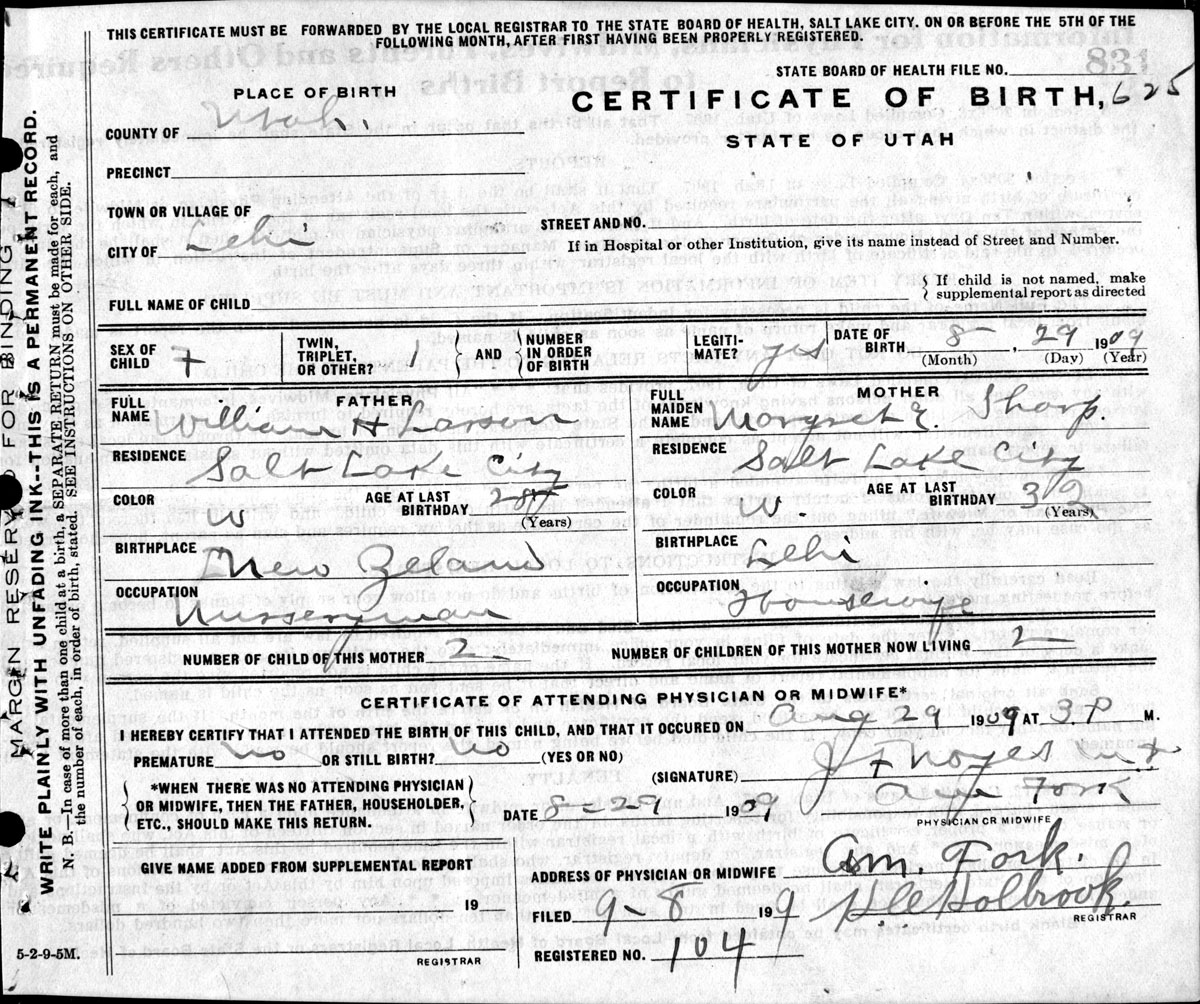 THIS CERTIFICATE MUST BE FORWARDED BY THE LOCAL REGISTRAR TO THE STATE BOARD OF HEALTH, SALT LAKE CITY. ON OR BEFORE THE 5TH OF THE
FOLLOWING MONTH, AFTER FIRST HAVING BEEN PROPERLY REGISTERED.
831
STATE BOARD OF HEALTH FILE NO.
PLACE OF BIRTH
CERTIFICATE OF BIRTH, 625
COUNTY OF Utah.
STATE OF UTAH
PRECINCT
TOWN OR VILLAGE OF
STREET AND NO.
CITY OF Lehi
If in Hospital or other Institution, give its name instead of Street and Number.
FULL NAME OF CHILD
{ If child is not named, make
supplemental report as directed
SEX OF CHILD F
TWIN, TRIPLET, OR OTHER? 1 } AND { NUMBER IN ORDER OF BIRTH
LEGITIMATE? yes
DATE OF BIRTH 8 - , 29 1909
(Month) (Day) (Year)
FATHER
FULL NAME William H Larson
MOTHER
FULL MAIDEN NAME Margret E. Sharp.
RESIDENCE Salt Lake City
RESIDENCE Salt Lake City
COLOR W
AGE AT LAST BIRTHDAY
(Years)
COLOR W.
AGE AT LAST BIRTHDAY 32
(Years)
BIRTHPLACE New Zeland
BIRTHPLACE Lehi
OCCUPATION Nurseryman
OCCUPATION Housewife
NUMBER OF CHILD OF THIS MOTHER 2
NUMBER OF CHILDREN OF THIS MOTHER NOW LIVING 2
CERTIFICATE OF ATTENDING PHYSICIAN OR MIDWIFE*
I HEREBY CERTIFY THAT I ATTENDED THE BIRTH OF THIS CHILD, AND THAT IT OCCURED ON Aug 29 1909 AT 3 P M.
PREMATURE No OR STILL BIRTH? No (YES OR NO)
*WHEN THERE WAS NO ATTENDING PHYSICIAN
OR MIDWIFE, THEN THE FATHER, HOUSEHOLDER,
ETC., SHOULD MAKE THIS RETURN.
(SIGNATURE) J F Noyes
DATE 8-29 1909 Fork
PHYSICIAN OR MIDWIFE
GIVE NAME ADDED FROM SUPPLEMENTAL REPORT
19
REGISTRAR
ADDRESS OF PHYSICIAN OR MIDWIFE Am. Fork.
FILED 9-8 199 Holbrook.
REGISTRAR
REGISTERED NO. 104
5-2-9-5M.
MARGIN RESERVED FOR BINDING
WRITE PLAINLY WITH UNFADING INK--THIS IS A PERMANENT RECORD.
N. B.—In case of more than one child at a birth, a SEPARATE RETURN must be made for each, and
the number of each, in order of birth, stated. SEE INSTRUCTIONS ON OTHER SIDE.